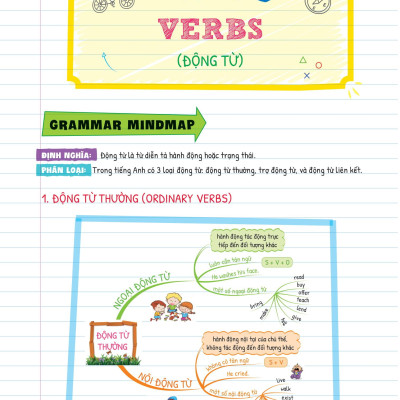 VERBS
(ĐỘNG TỪ)
GRAMMAR MINDMAP
ĐỊNH NGHĨA: Động từ là từ diễn tả hành động hoặc trạng thái.
PHÂN LOẠI: Trong tiếng Anh có 3 loại động từ: động từ thường, trợ động từ, và động từ liên kết.
1. ĐỘNG TỪ THƯỜNG (ORDINARY VERBS)
hành động tác động trực
tiếp đến đối tượng khác
luôn cần tân ngữ
S + V + O
He washes his face.
một số ngoại động từ
read
buy
offer
teach
lend
give
bring
make
NGOẠI ĐỘNG TỪ
ĐỘNG TỪ
THƯỜNG
NỘI ĐỘNG TỪ
hành động nội tại của chủ thể,
không tác động đến đối tượng khác
không có tân ngữ
S + V
He cried.
một số nội động từ
live
walk
exist